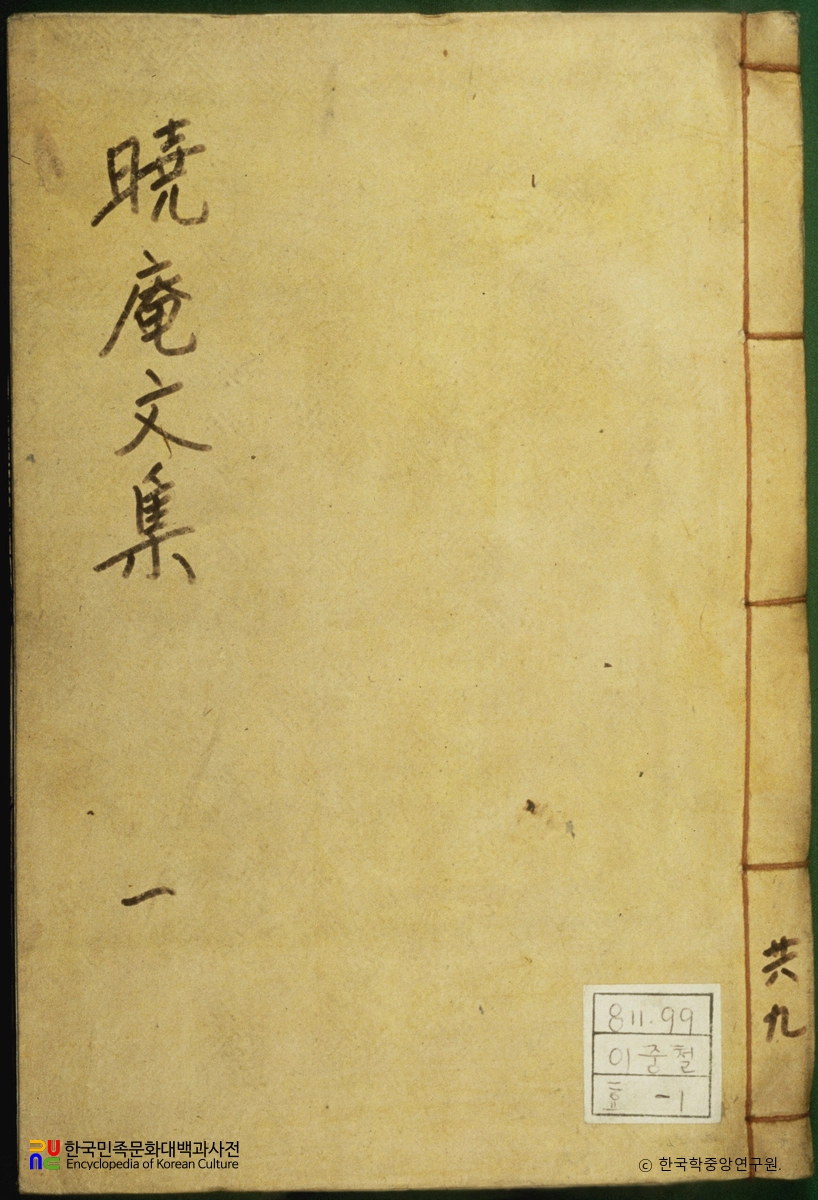 曉庵文集
一
共九
811.99
이중철
효 -1
한국민족문화대백과사전
Encyclopedia of Korean Culture
© 한국학중앙연구원.